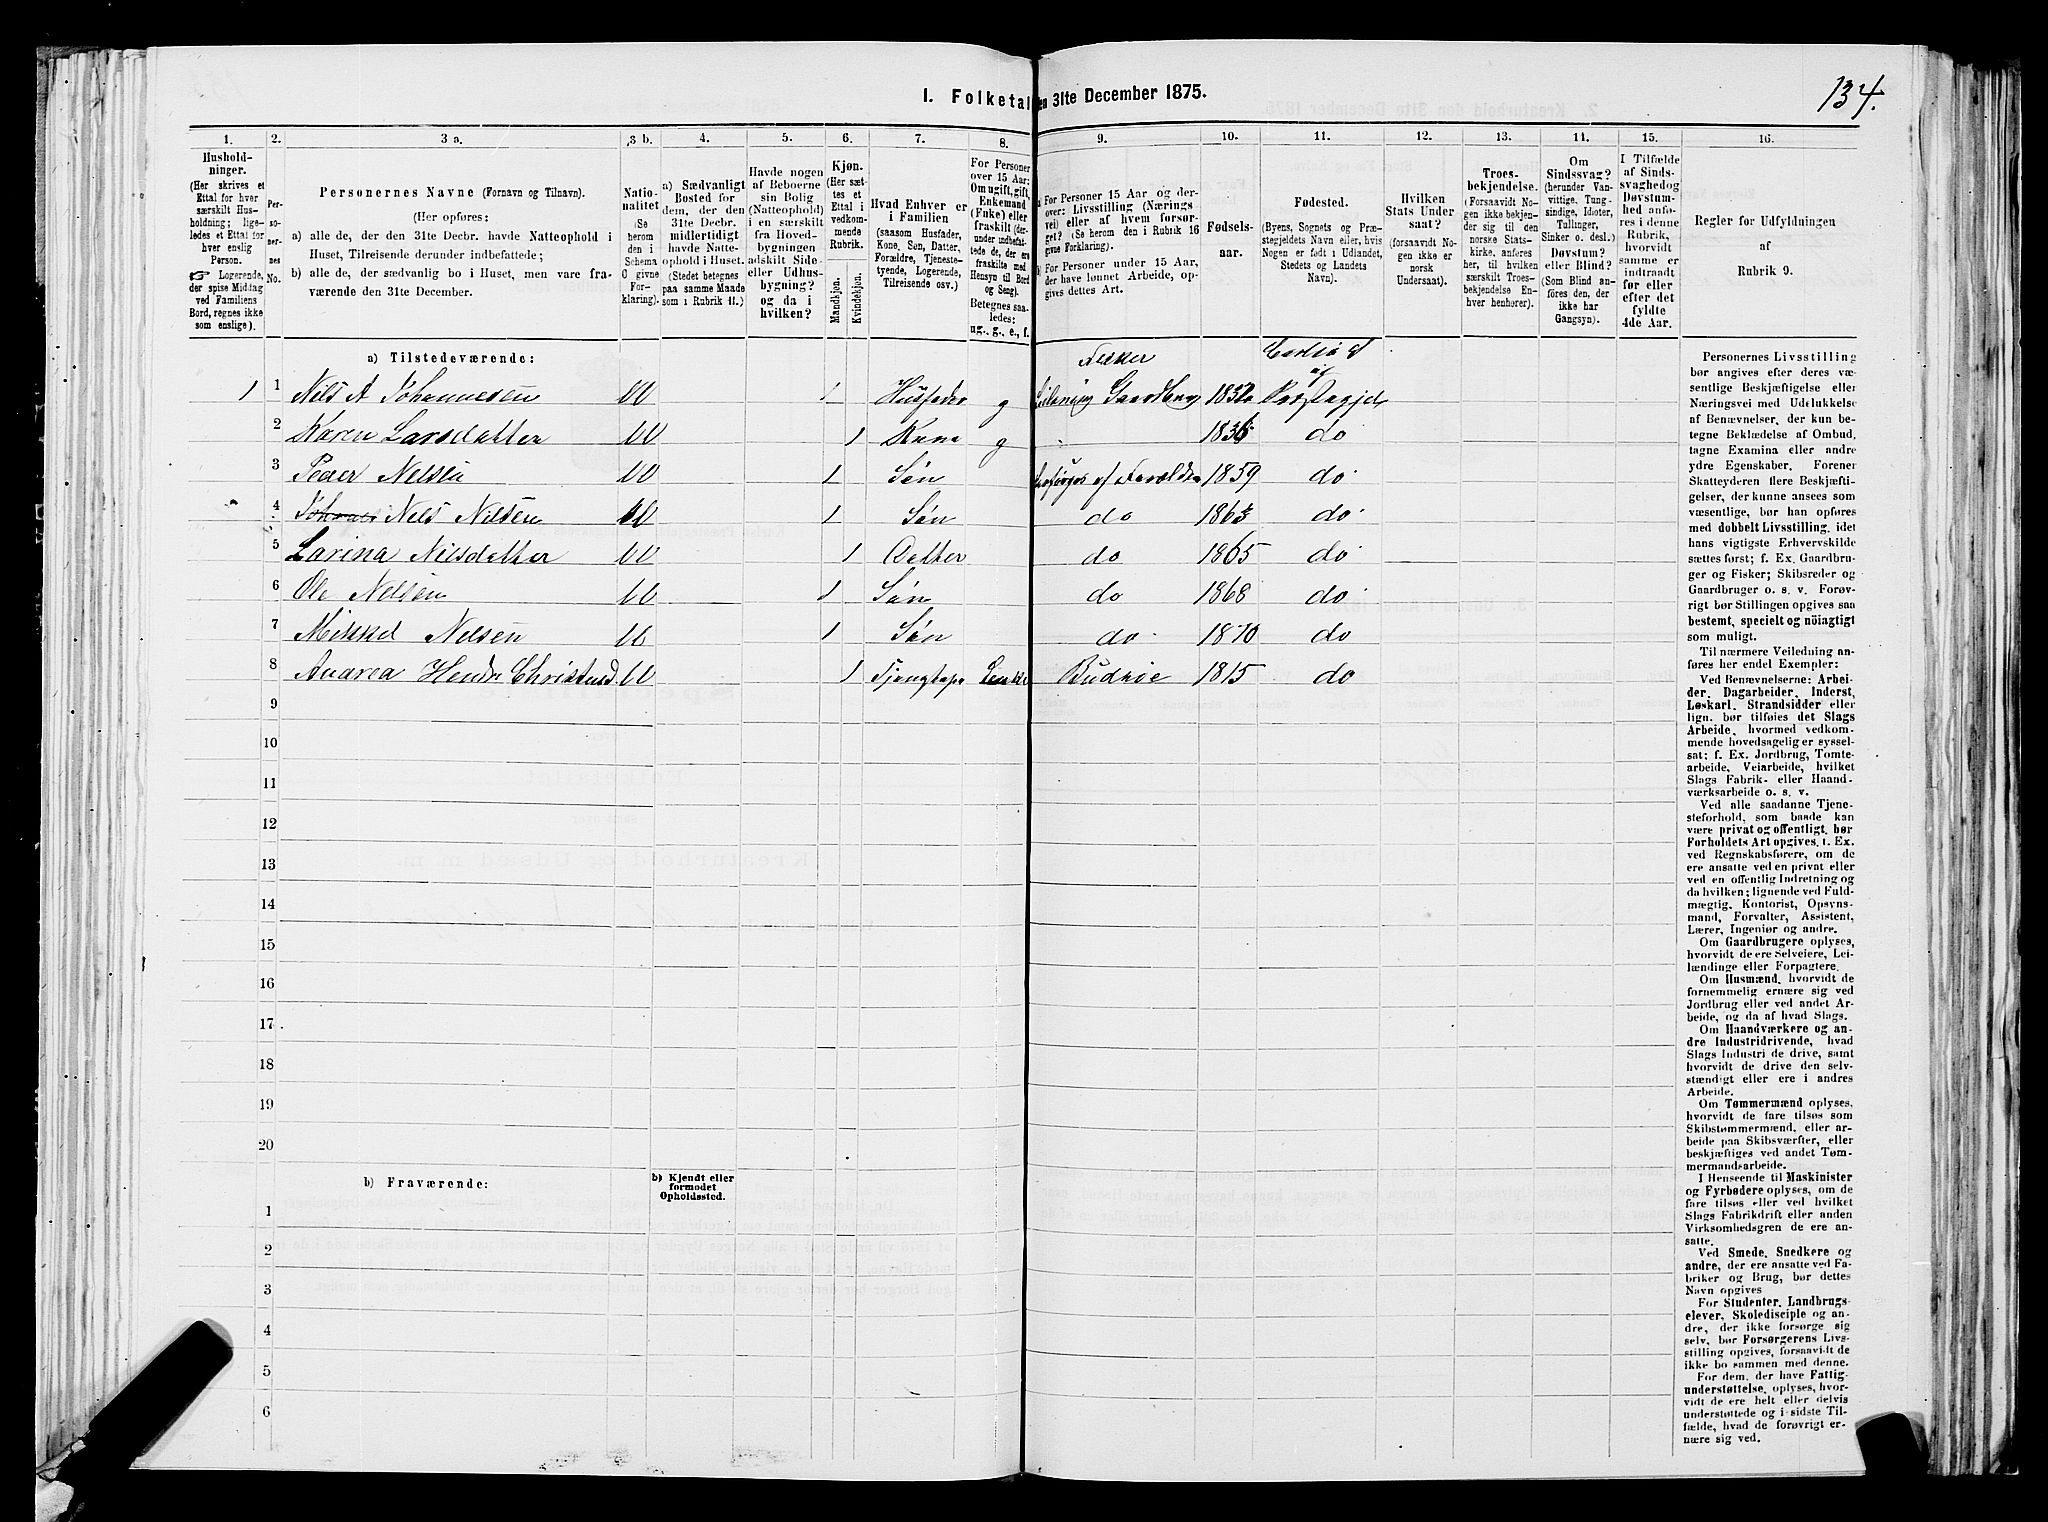 134.
I. Folketal den 31te December 1875.
1. 2. 3 a. 3 b. 4. 5. 6. 7. 8. 9. 10. 11. 12. 13. 14. 15. 16.
Hushold-
ninger.
(Her skrives et
Ettal for hver
særskilt Hus-
holdning; lige-
ledes et Ettal for
hver enslig
Person.
☞ Logerende,
der spise Middag
ved Familiens
Bord, regnes ikke
som enslige).
Per-
so-
ner-
nes
No.
Personernes Navne (Fornavn og Tilnavn).
(Her opføres:
a) alle de, der den 31te Decbr. havde Natteophold i
Huset, Tilreisende derunder indbefattede;
b) alle de, der sædvanlig bo i Huset, men vare fra-
værende den 31te December.
Natio-
nalitet
(Se
herom
i det
Schema
O givne
For-
klaring).
a) Sædvanligt
Bosted for
dem, der den
31te Decbr.
midlertidigt
havde Natte-
ophold i Huset.
(Stedet betegnes
paa samme Maade
som i Rubrik 11.)
Havde nogen
af Beboerne
sin Bolig
(Natteophold)
i en særskilt
fra Hoved-
bygningen
adskilt Side-
eller Udhus-
bygning?
og da i
hvilken?
Kjøn.
(Her sæt-
tes et
Ettal i
vedkom-
mende
Rubrik.
Mandkjøn.
Kvindekjøn.
Hvad Enhver er
i Familien
(saasom Husfader,
Kone, Søn, Datter,
Forældre, Tjeneste-
tyende, Logerende,
Tilreisende osv.)
For Personer
over 15 Aar:
Om ugift, gift,
Enkemand
(Enke) eller
fraskilt (der-
under indbefat-
tede de, der ere
fraskilte med
Hensyn til Bord
og Seng).
Betegnes saa-
ledes:
ug., g., e., f.
a) For Personer 15 Aar og der-
over: Livsstilling (Nærings-
vei) eller af hvem forsør-
get? (Se herom den i Rubrik 16
givne Forklaring).
b) For Personer under 15 Aar,
der have lønnet Arbeide, op-
gives dettes Art.
Fødsels-
aar.
Fødested.
(Byens, Sognets og Præ-
stegjeldets Navn eller, hvis
Nogen er født i Udlandet,
Stedets og Landets
Navn).
Hvilken
Stats Under
saat?
(forsaavidt No-
gen ikke er
norsk
Undersaat).
Troes-
bekjendelse.
(Forsaavidt No-
gen ikke bekjen-
der sig til den
norske Stats-
kirke, anføres
her, til hvilken
særskilt Troes-
bekjendelse En-
hver henhører).
Om
Sindssvag?
(herunder Van-
vittige, Tung-
sindige, Idioter,
Tullinger,
Sinker o. desl.)
Døvstum?
eller Blind?
(Som Blind an-
føres den, der
ikke har
Gangsyn).
I Tilfælde
af Sinds-
svaghed og
Døvstum-
hed anfø-
res i denne
Rubrik,
hvorvidt
samme er
indtraadt
før eller
efter det
fyldte
4de Aar.
Regler for Udfyldningen
af
Rubrik 9.
a) Tilstedeværende:
Fisker
1 1 Nils A Johannesen 1 Husfader g Gaardbruger
2 Karen Larsdatter 1 Kone g 1836 do
3 Peder Nelsen 1 Søn 1859 do
4 Nels Nilsen 1 Søn do 1863 do
5 Larina Nilsdatter 1 Datter do 1865 do
6 Ole Nelsen 1 Søn do 1868 do
7 Mikkel Nelsen 1 Søn do 1870 do
8 1 1815 do
9
10
11
12
13
14
15
16
17
18
19
20
b) Fraværende:
b) Kjendt eller
formodet
Opholdssted.
1
2
3
4
5
6
Personernes Livsstilling
bør angives efter deres væ-
sentlige Beskjæftigelse eller
Næringsvei med Udelukkelse
af Benævnelser, der kun be-
tegne Beklædelse af Ombud,
tagne Examina eller andre
ydre Egenskaber. Forener
Skatteyderen flere Beskjæfti-
gelser, der kunne ansees som
væsentlige, bør han opføres
med dobbelt Livsstilling, idet
hans vigtigste Erhvervskilde
sættes først; f. Ex. Gaardbru-
ger og Fisker; Skibsreder og
Gaardbruger o. s. v. Forøv-
rigt bør Stillingen opgives saa
bestemt, specielt og nøiagtigt
som muligt.
Til nærmere Veiledning an-
føres her endel Exempler:
Ved Benævnelserne: Arbei-
der, Dagarbeider, Inderst,
Løskarl, Strandsidder eller
lign. bør tilføies det Slags
Arbeide, hvormed vedkom-
mende hovedsagelig er syssel-
sat; f. Ex. Jordbrug, Tomte-
arbeide, Veiarbeide, hvilket
Slags Fabrik- eller Haand-
værksarbeide o. s. v.
Ved alle saadanne Tjene-
steforhold, som baade kan
være privat og offentligt, bør
Forholdets Art opgives, f. Ex.
ved Regnskabsførere, om de
ere ansatte ved en privat eller
ved en offentlig Indretning og
da hvilken; lignende ved Fuld-
mægtig, Kontorist, Opsyns-
mand, Forvalter, Assistent,
Lærer, Ingeniør og andre.
Om Gaardbrugere oplyses,
hvorvidt de ere Selveiere, Lei-
lændinge eller Forpagtere.
Om Husmænd, hvorvidt de
fornemmelig ernære sig ved
Jordbrug eller ved andet Ar-
beide, og da af hvad Slags.
Om Haandværkere og an-
dre Industridrivende, hvad
Slags Industri de drive, samt
hvorvidt de drive den selv-
stændigt eller ere i andres
Arbeide.
Om Tømmermænd oplyses,
hvorvidt de fare tilsøs som
Skibstømmermænd, eller ar-
beide paa Skibsværfter, eller
beskjæftiges ved andet Tøm-
mermandsarbeide.
I Henseende til Maskinister
og Fyrbødere oplyses, om de
fare tilsøs eller ved hvilket
Slags Fabrikdrift eller anden
Virksomhedsgren de ere an-
satte.
Ved Smede, Snedkere og
andre, der ere ansatte ved Fa-
briker og Brug, bør dettes
Navn opgives
For Studenter, Landbrugs-
elever, Skoledisciple og an-
dre, der ikke forsørge sig
selv, bør Forsørgerens Livs-
stilling opgives, forsaavidt de
ikke bo sammen med denne.
For dem, der have Fattig-
understøttelse, oplyses, hvor-
vidt de ere helt eller delvis
understøttede og i sidste Til-
fælde, hvad de forøvrigt er-
nære sig ved.